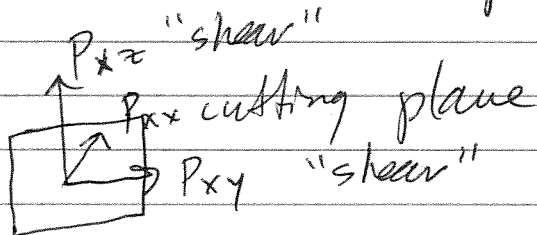 Pxz "shear"
Pxx cutting plane
Pxy "shear"